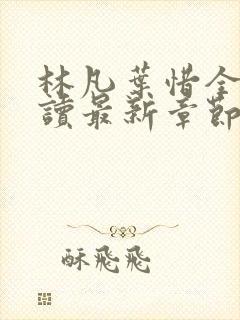 林凡葉惜全
讀最新章節
酥飛飛